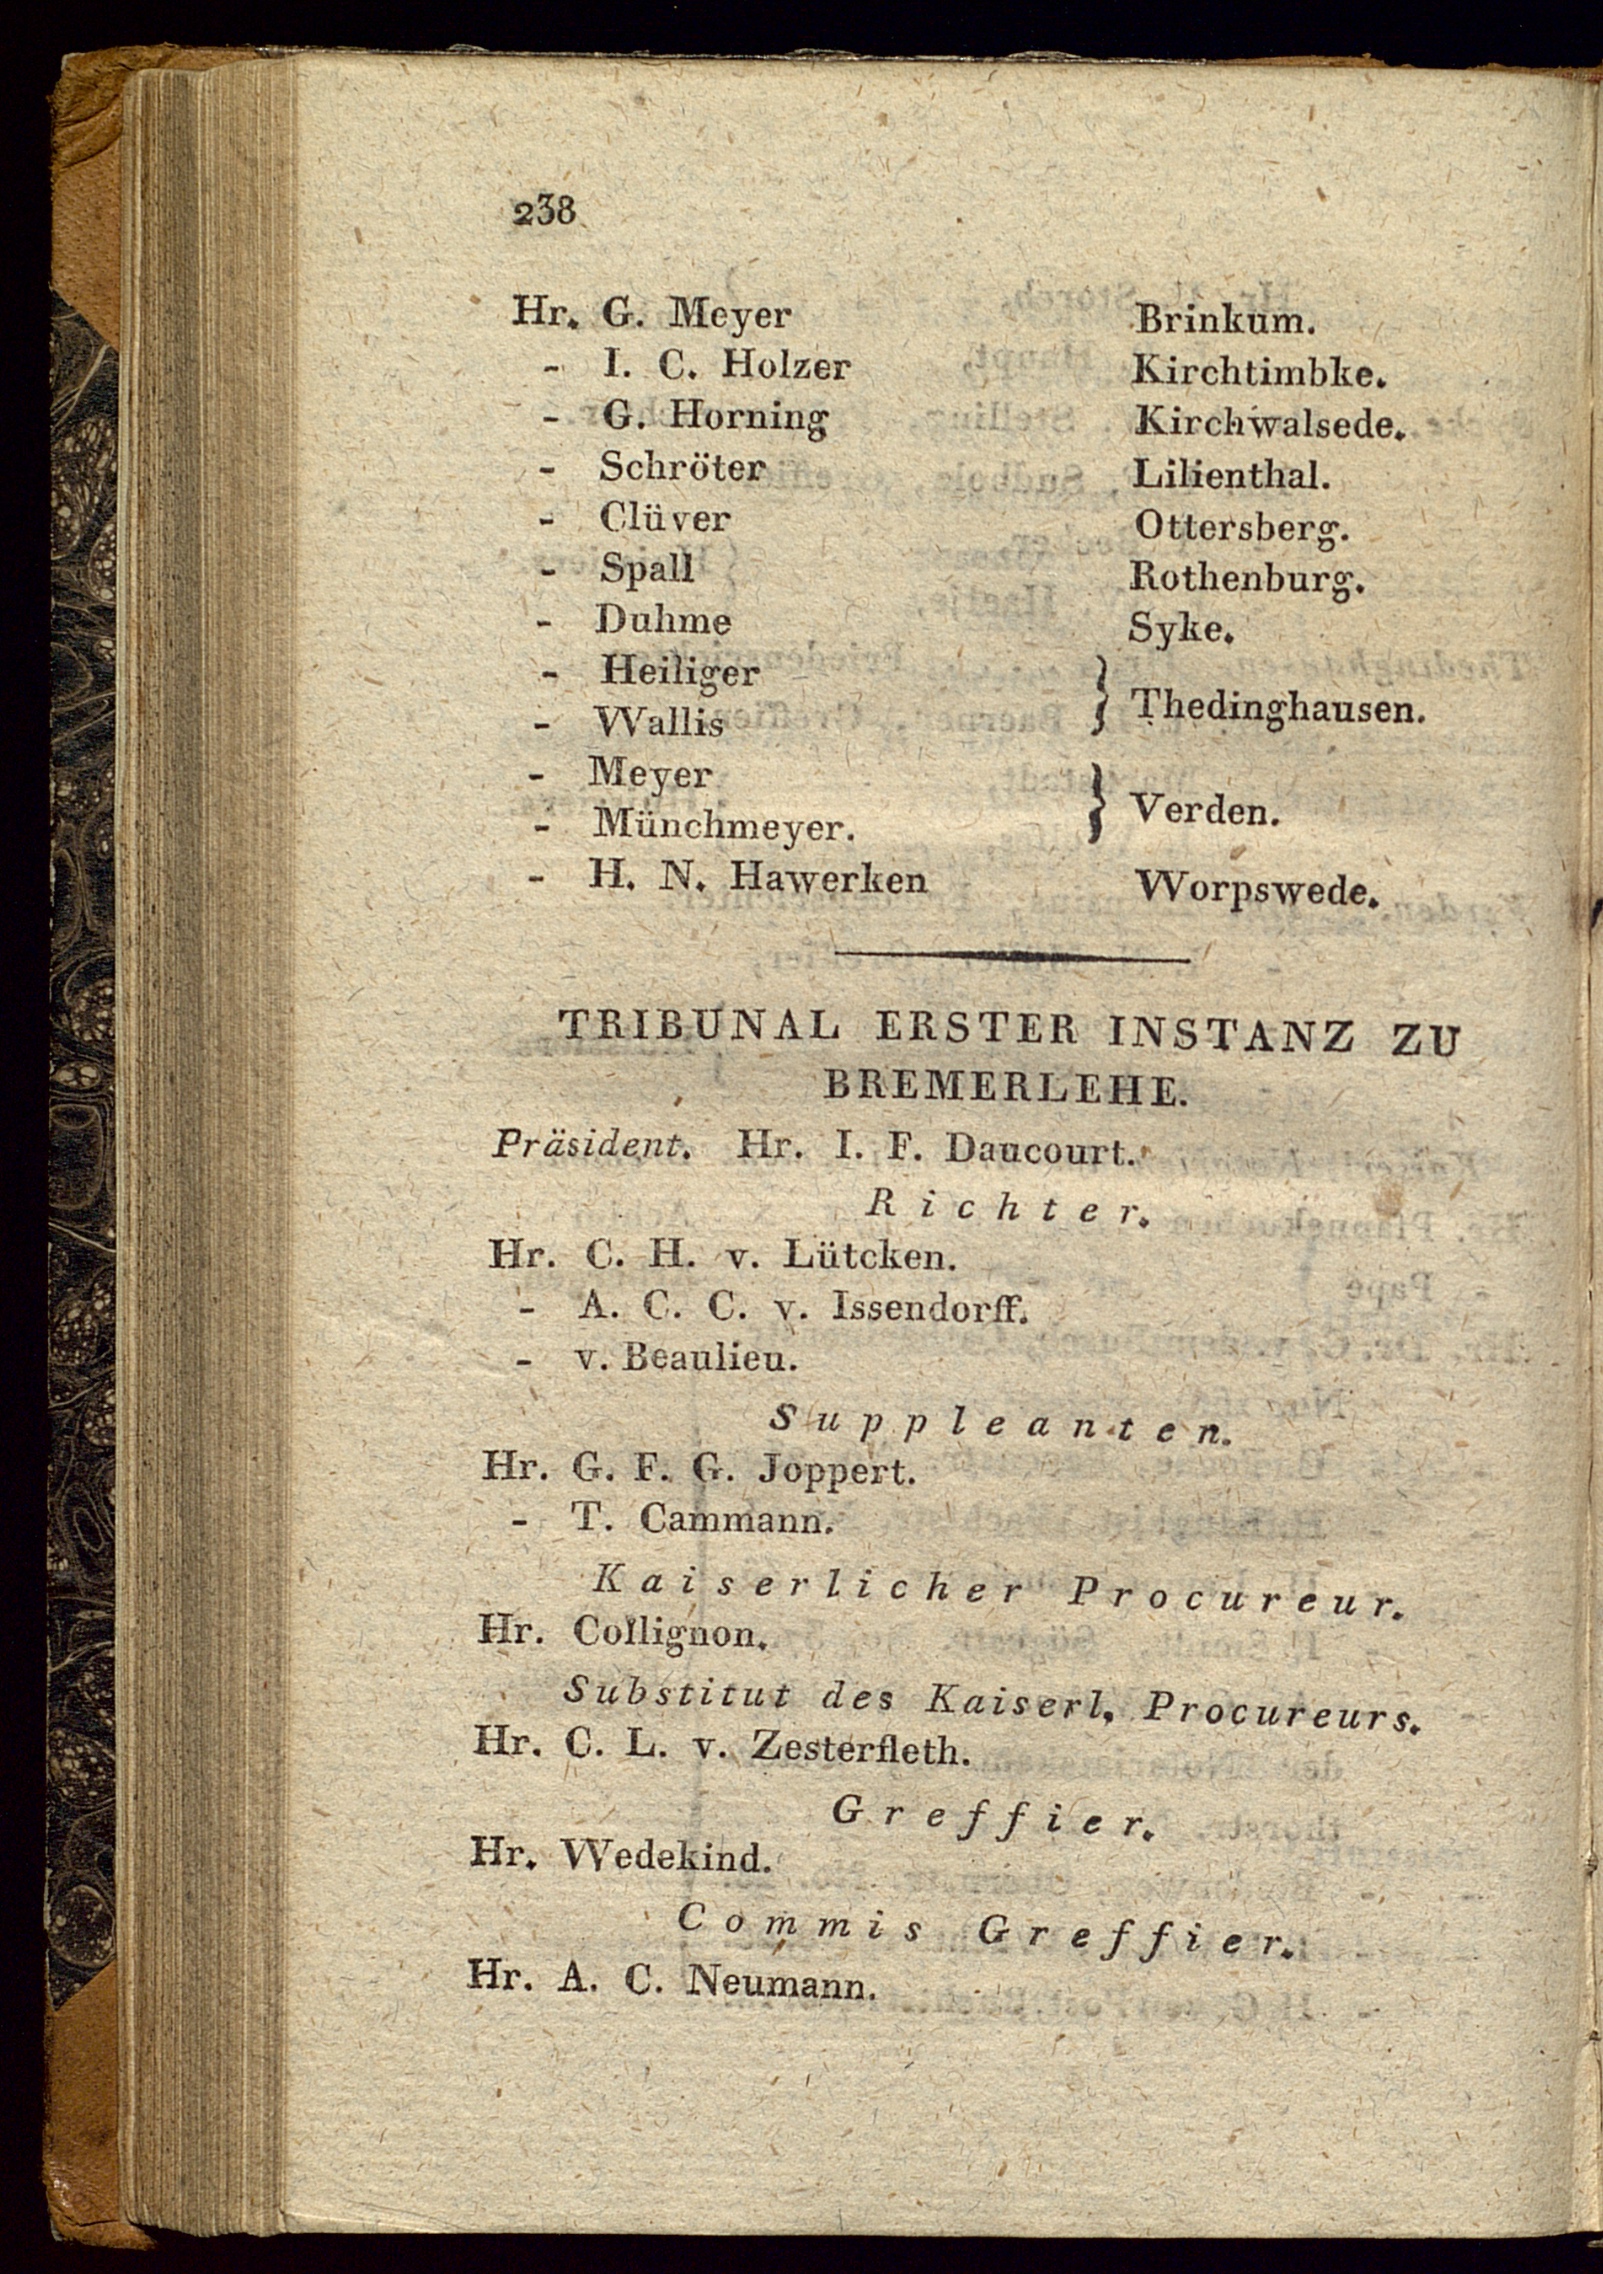 238
Hr. G. Meyer Brinkum.
- I. C. Holzer Kirchtimbke.
- G. Horning Kirchwalsede.
- Schröter Lilienthal.
- Clüver Ottersberg.
- Spall Rothenburg.
- Duhme Syke.
- Heiliger
- Wallis } Thedinghausen.
- Meyer
- Münchmeyer. } Verden.
- H. N. Hawerken Worpswede.
TRIBUNAL ERSTER INSTANZ ZU
BREMERLEHE.
Präsident. Hr. I. F. Daucourt.
Richter.
Hr. C. H. v. Lütcken.
- A. C. C. v. Issendorff.
- v. Beaulieu.
Suppleanten.
Hr. G. F. G. Joppert.
- T. Cammann.
Kaiserlicher Procureur.
Hr. Collignon.
Substitut des Kaiserl. Procureurs.
Hr. C. L. v. Zesterfleth.
Greffier.
Hr. Wedekind.
Commis Greffier.
Hr. A. C. Neumann.